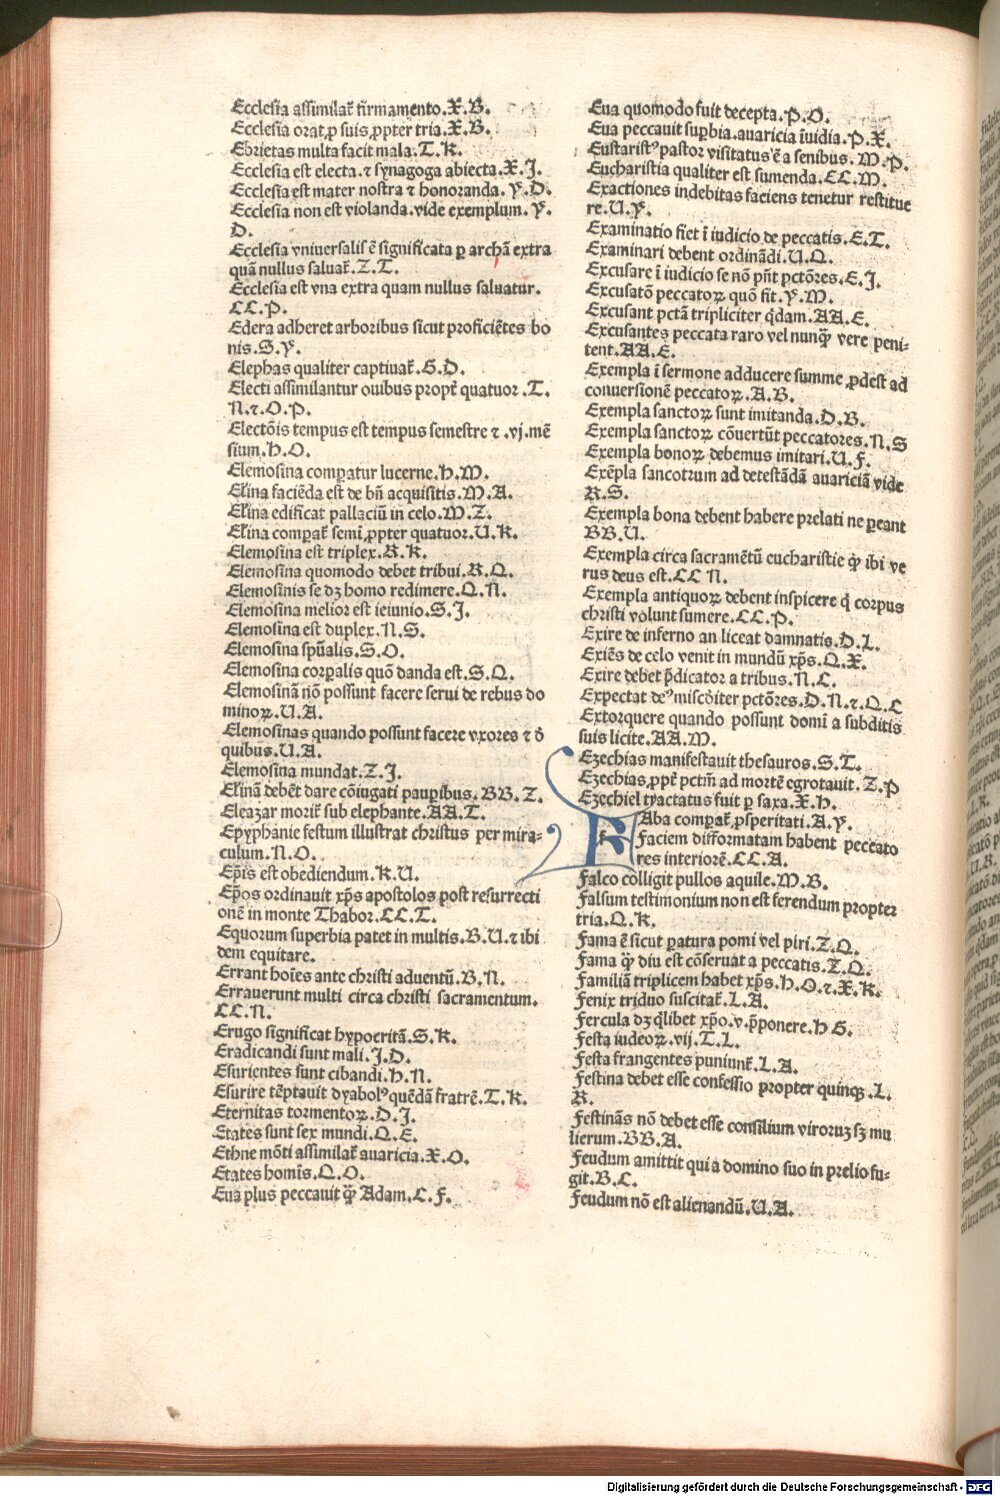 Ecclesia assimilat̃ firmamento.X.B.
Ecclesia orat ꝓ suis ꝓpter tria.X.B.
Ebrietas multa facit mala.T.K.
Ecclesia est electa.⁊ synagoga abiecta.X.J.
Ecclesia est mater nostra ⁊ honoranda.Y.D.
Ecclesia non est violanda.vide exemplum.Y.
D.
Ecclesia vniuersalis ē significata ꝑ archā extra
quā nullus saluat̃.Z.T.
Ecclesia est vna extra quam nullus saluatur.
CC.P.
Edera adheret arboribus sicut proficiētes bo
nis.S.Y.
Elephas qualiter captiuat̃.G.D.
Electi assimilantur ouibus propt̃ quatuor.T.
N.⁊.O.P.
Electōis tempus est tempus semestre ⁊.vj.mē
sium.H.O.
Elemosina comꝑatur lucerne.H.M.
Elīna faciēda est de bñ acquisitis.M.A.
Elīna edificat pallaciū in celo.M.Z.
Elīna comꝑat̃ semī ꝓpter quatuor.U.K.
Elemosina est triplex.R.K.
Elemosina quomodo debet tribui.R.Q.
Elemosinis se dꝫ homo redimere.Q.N.
Elemosina melior est ieiunio.S.J.
Elemosina est duplex.N.S.
Elemosina spūalis.S.O.
Elemosina corꝑalis quō danda est.S.Q.
Elemosinā nō possunt facere serui de rebus do
minoꝝ.U.A.
Elemosinas quando possunt facere vxores ⁊ d̄
quibus.U.A.
Elemosina mundat.Z.J.
Elīnā debēt dare cōiugati pauꝑibus.BB.Z.
Eleazar morit̃ sub elephante.AA.T.
Epyphanie festum illustrat christus per mira⸗
culum.N.O.
Ep̄is est obediendum.K.U.
Ep̄os ordinauit xp̄s apostolos post resurrecti
onē in monte Thabor.CC.T.
Equorum superbia patet in multis.B.U.⁊ ibi
dem equitare.
Errant hoīes ante christi aduentū.B.N.
Errauerunt multi circa christi sacramentum.
CC.N.
Erugo significat hypocritā.S.K.
Eradicandi sunt mali.J.D.
Esurientes sunt cibandi.H.N.
Esurire tēptauit dyabolꝰ quēdā fratrē.T.K.
Eternitas tormentoꝝ.D.J.
Etates sunt sex mundi.Q.E.
Ethne mōti assimilat̃ auaricia.X.O.
Etates homīs.Q.O.
Eua plus peccauit ꝙ̃ Adam.C.F.
Eua quomodo fuit decepta.P.O.
Eua peccauit suꝑbia.auaricia īuidia.P.X.
Eustaristꝰ pastor visitatus ē a senibus.M.P.
Eucharistia qualiter est sumenda.CC.M.
Exactiones indebitas faciens tenetur restitue
re.U.Y.
Examinatio fiet ī iudicio de peccatis.E.T.
Examinari debent ordinādi.U.Q.
Excusare ī iudicio se nō pñt pctōres.E.J.
Excusatō peccatoꝝ quō fit.Y.M.
Excusant pctā tripliciter q̇dam.AA.E.
Excusantes peccata raro vel nunꝙ̃ vere peni⸗
tent.AA.E.
Exempla ī sermone adducere summe ꝓdest ad
conuersionē peccatoꝝ.A.B.
Exempla sanctoꝝ sunt imitanda.D.B.
Exempla sanctoꝝ cōuertūt peccatores.N.S
Exempla bonoꝝ debemus imitari.U.F.
Exēpla sancotrum ad detestādā auariciā vide
R.S.
Exempla bona debent habere prelati ne ꝑeant
BB.U.
Exempla circa sacramētū eucharistie ꝙ̃ ibi ve
rus deus est.CC N.
Exempla antiquoꝝ debent inspicere q̇ corpus
christi volunt sumere.CC.P.
Exire de inferno an liceat damnatis.D.L.
Exiēs de celo venit in mundū xp̄s.Q.X.
Exire debet p̄dicator a tribus.N.C.
Expectat deꝰ misc̄diter pctōres.D.N.⁊.Q.C
Extorquere quando possunt domī a subditis
suis licite.AA.M.
Ezechias manifestauit thesauros.S.T.
Ezechias ꝓpt̃ pctm̄ ad mortē egrotauit.Z.P
Ezechiel tractatus fuit ꝑ saxa.X.H.
FAba comꝑat̃ ꝓsperitati.A.Y.
Faciem difformatam habent peccato
res interiorē.CC.A.
Falco colligit pullos aquile.M.B.
Falsum testimonium non est ferendum propter
tria.Q.K.
Fama ē sicut ꝑatura pomi vel piri.Z.Q.
Fama ꝙ̃ diu est cōseruat a peccatis.Z.Q.
Familiā triplicem habet xp̄s.H.O.⁊.X.K.
Fenix triduo suscitat̃.L.A.
Fercula dꝫ q̇libet xp̄o.v.p̄ponere.H G.
Festa iudeoꝝ.vij.T.L.
Festa frangentes puniunt̃.L.A.
Festina debet esse confessio propter quinqꝫ.L.
R.
Festinās nō debet esse consilium viroruꝫ sꝫ mu
lierum.BB.A.
Feudum amittit qui a domino suo in prelio fu⸗
git.B.C.
Feudum nō est alienandū.U.A.
Digitalisierung gefördert durch die Deutsche Forschungsgemeinschaft - DFG